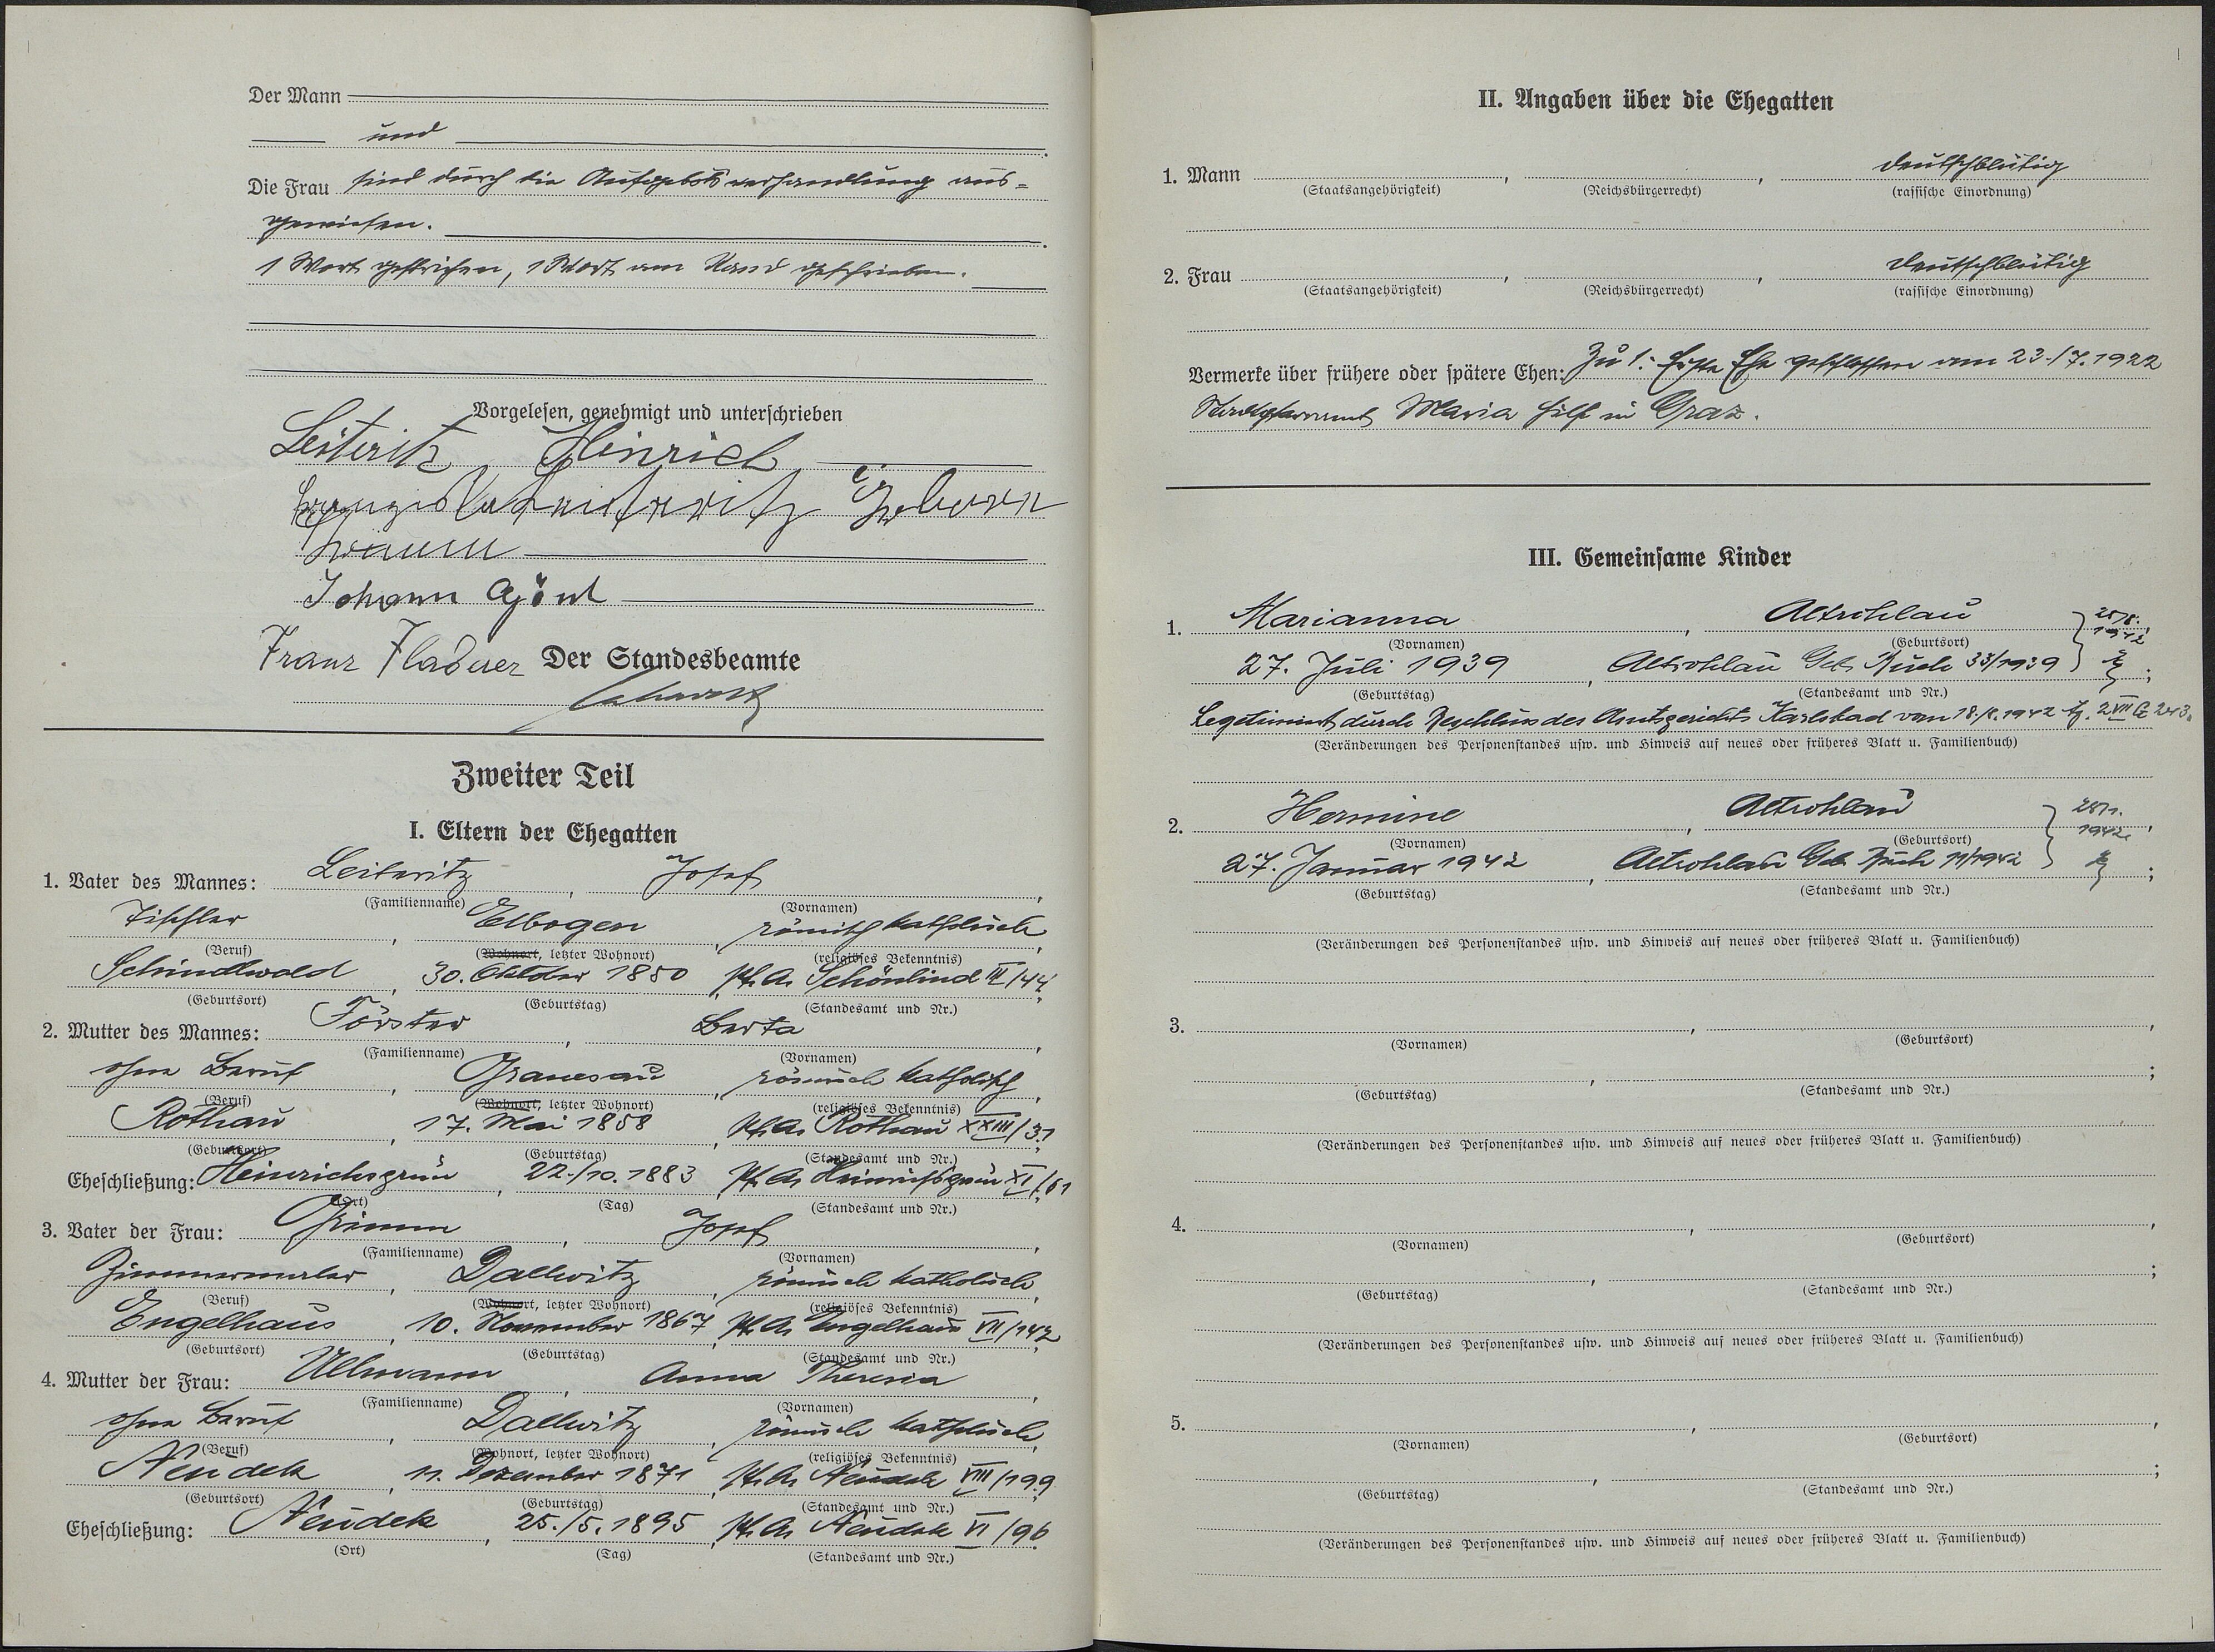 Der Mann
und
Die Frau sind durch die Aufgebotsverhandlung aus-
gewiesen.
1 Wort gestrichen, 1 Wort am Rand geschrieben.
Vorgelesen, genehmigt und unterschrieben
Leiteritz Heinrich
Leiteritz Geboren
Johann
Franz Fladerer Der Standesbeamte
Zweiter Teil
I. Eltern der Ehegatten
1. Vater des Mannes: Leiteritz, Josef,
(Familienname) (Vornamen)
Tischler, Elbogen, römisch katholisch,
(Beruf) (Wohnort, letzter Wohnort) (religiöses Bekenntnis)
Schindlwald, 30. Oktober 1850, Pf. A. Schönlind III/44,
(Geburtsort) (Geburtstag) (Standesamt und Nr.)
2. Mutter des Mannes: Förster, Berta,
(Familienname) (Vornamen)
ohne Beruf, Granesau, römisch katholisch,
(Beruf) (Wohnort, letzter Wohnort) (religiöses Bekenntnis)
Rothau, 17. Mai 1858, Pf. A. Rothau XXIII/31
(Geburtsort) (Geburtstag) (Standesamt und Nr.)
Eheschließung: Heinrichsgrün, 22./10. 1883, Pf. A. Heinrichsgrün XI/61
(Ort) (Tag) (Standesamt und Nr.)
3. Vater der Frau: Grimm, Josef,
(Familienname) (Vornamen)
Zimmermaler, Dallwitz, römisch katholisch,
(Beruf) (Wohnort, letzter Wohnort) (religiöses Bekenntnis)
Engelhaus, 10. November 1867, Pf. A. Engelhaus VII/142
(Geburtsort) (Geburtstag) (Standesamt und Nr.)
4. Mutter der Frau: Ullmann, Anna Theresia,
(Familienname) (Vornamen)
ohne Beruf, Dallwitz, römisch katholisch,
(Beruf) (Wohnort, letzter Wohnort) (religiöses Bekenntnis)
Neudek, 11. Dezember 1871, Pf. A. Neudek VIII/199,
(Geburtsort) (Geburtstag) (Standesamt und Nr.)
Eheschließung: Neudek, 25./5. 1895, Pf. A. Neudek VI/96
(Ort) (Tag) (Standesamt und Nr.)
II. Angaben über die Ehegatten
1. Mann , , deutschblütig
(Staatsangehörigkeit) (Reichsbürgerrecht) (rassische Einordnung)
2. Frau , , deutschblütig
(Staatsangehörigkeit) (Reichsbürgerrecht) (rassische Einordnung)
Vermerke über frühere oder spätere Ehen: Zu 1: Erste Ehe geschlossen am 23./7. 1922
Stadtpfarramt Maria Hilf in Graz.
III. Gemeinsame Kinder
1. Marianna, Altrohlau
(Vornamen) (Geburtsort)
27. Juli 1939, Altrohlau Geb. Buch 33/1939 ;
(Geburtstag) (Standesamt und Nr.)
Legitimiert durch Beschluss des Amtsgerichts Karlsbad vom 1942
(Veränderungen des Personenstandes usw. und Hinweis auf neues oder früheres Blatt u. Familienbuch)
2. Hermine, Altrohlau 1942,
(Vornamen) (Geburtsort)
27. Januar 1942, Altrohlau Geb. Buch 11/1942 ;
(Geburtstag) (Standesamt und Nr.)
(Veränderungen des Personenstandes usw. und Hinweis auf neues oder früheres Blatt u. Familienbuch)
3. , ,
(Vornamen) (Geburtsort)
, ;
(Geburtstag) (Standesamt und Nr.)
(Veränderungen des Personenstandes usw. und Hinweis auf neues oder früheres Blatt u. Familienbuch)
4. , ,
(Vornamen) (Geburtsort)
, ;
(Geburtstag) (Standesamt und Nr.)
(Veränderungen des Personenstandes usw. und Hinweis auf neues oder früheres Blatt u. Familienbuch)
5. , ,
(Vornamen) (Geburtsort)
, ;
(Geburtstag) (Standesamt und Nr.)
(Veränderungen des Personenstandes usw. und Hinweis auf neues oder früheres Blatt u. Familienbuch)